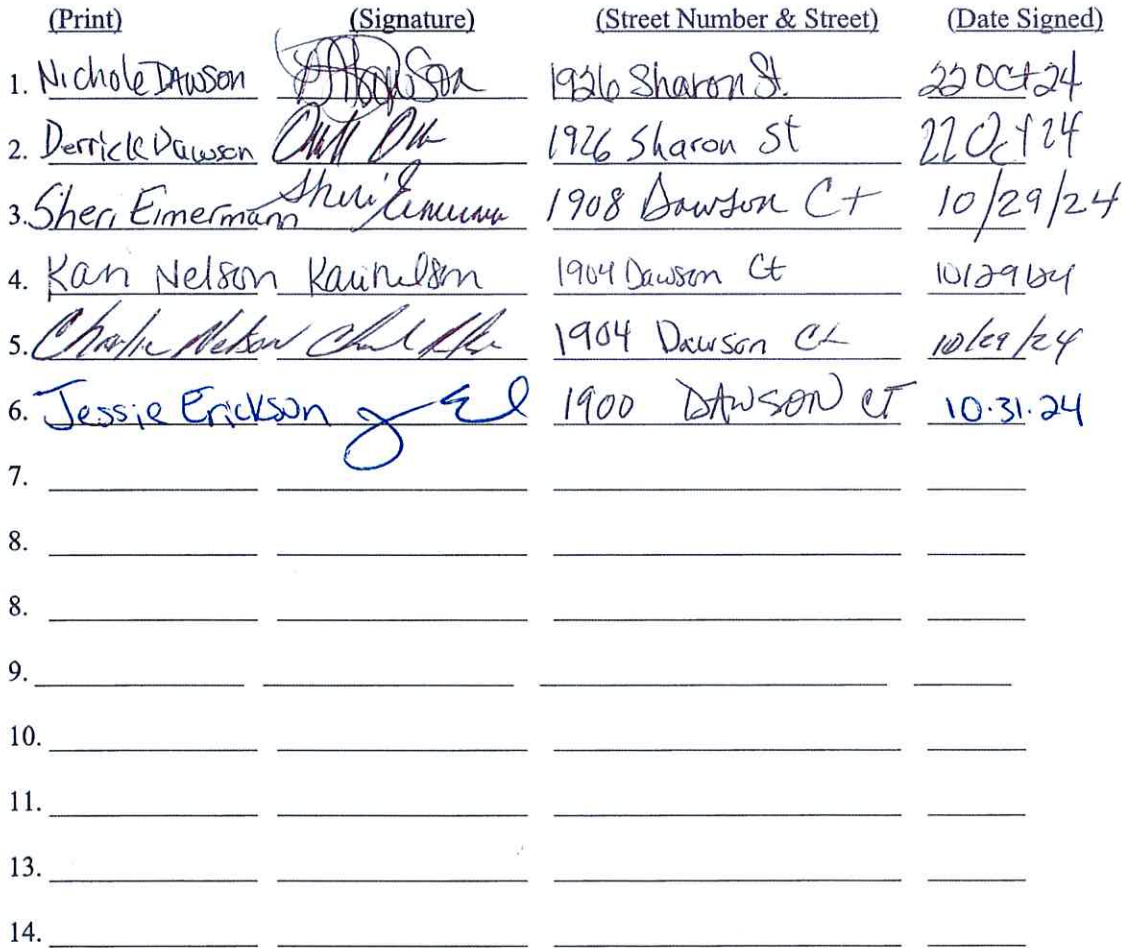 (Print) (Signature) (Street Number & Street) (Date Signed)
1. Nichole Dawson Dawson 1926 Sharon St. 22 Oct 24
2. Derrick Dawson 1926 Sharon St 22 Oct 24
3. Sheri Eimermann Sheri Eimermann 1908 Dawson Ct 10/29/24
4. Kari Nelson Kari Nelson 1904 Dawson Ct 10/29/24
5. Charlie Nelson 1904 Dawson Ct 10/29/24
6. Jessie Erickson 1900 DAWSON CT 10.31.24
7.
8.
8.
9.
10.
11.
13.
14.